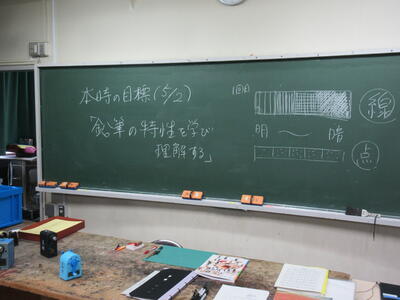 本時の目標(5/2)
「鉛筆の特性を学び
理解する」
1回目
線
明 ～ 暗
点